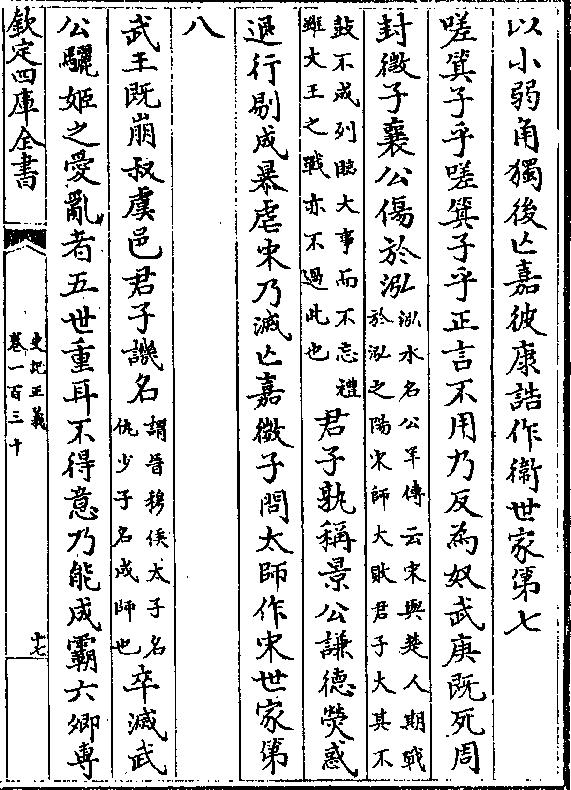 以小弱角獨後亡嘉彼康誥作衛世家第七
嗟箕子乎嗟箕子乎正言不用乃反為奴武庚既死周
封微子襄公傷於泓泓水名公羊傳云宋與楚人期戰
於泓之陽宋師大敗君子大其不
鼓不成列臨大事而不忘禮
雖文王之戰亦不過此也君子孰稱景公謙德熒惑
退行剔成暴虐宋乃滅亡嘉微子問太師作宋世家第
八
武王既崩叔虞邑君子譏名謂晉穆侯太子名
仇少子名成師也卒滅武
公驪姬之愛亂者五世重耳不得意乃能成霸六卿専
欽定四庫全書
史記正義
卷一百三十
十七